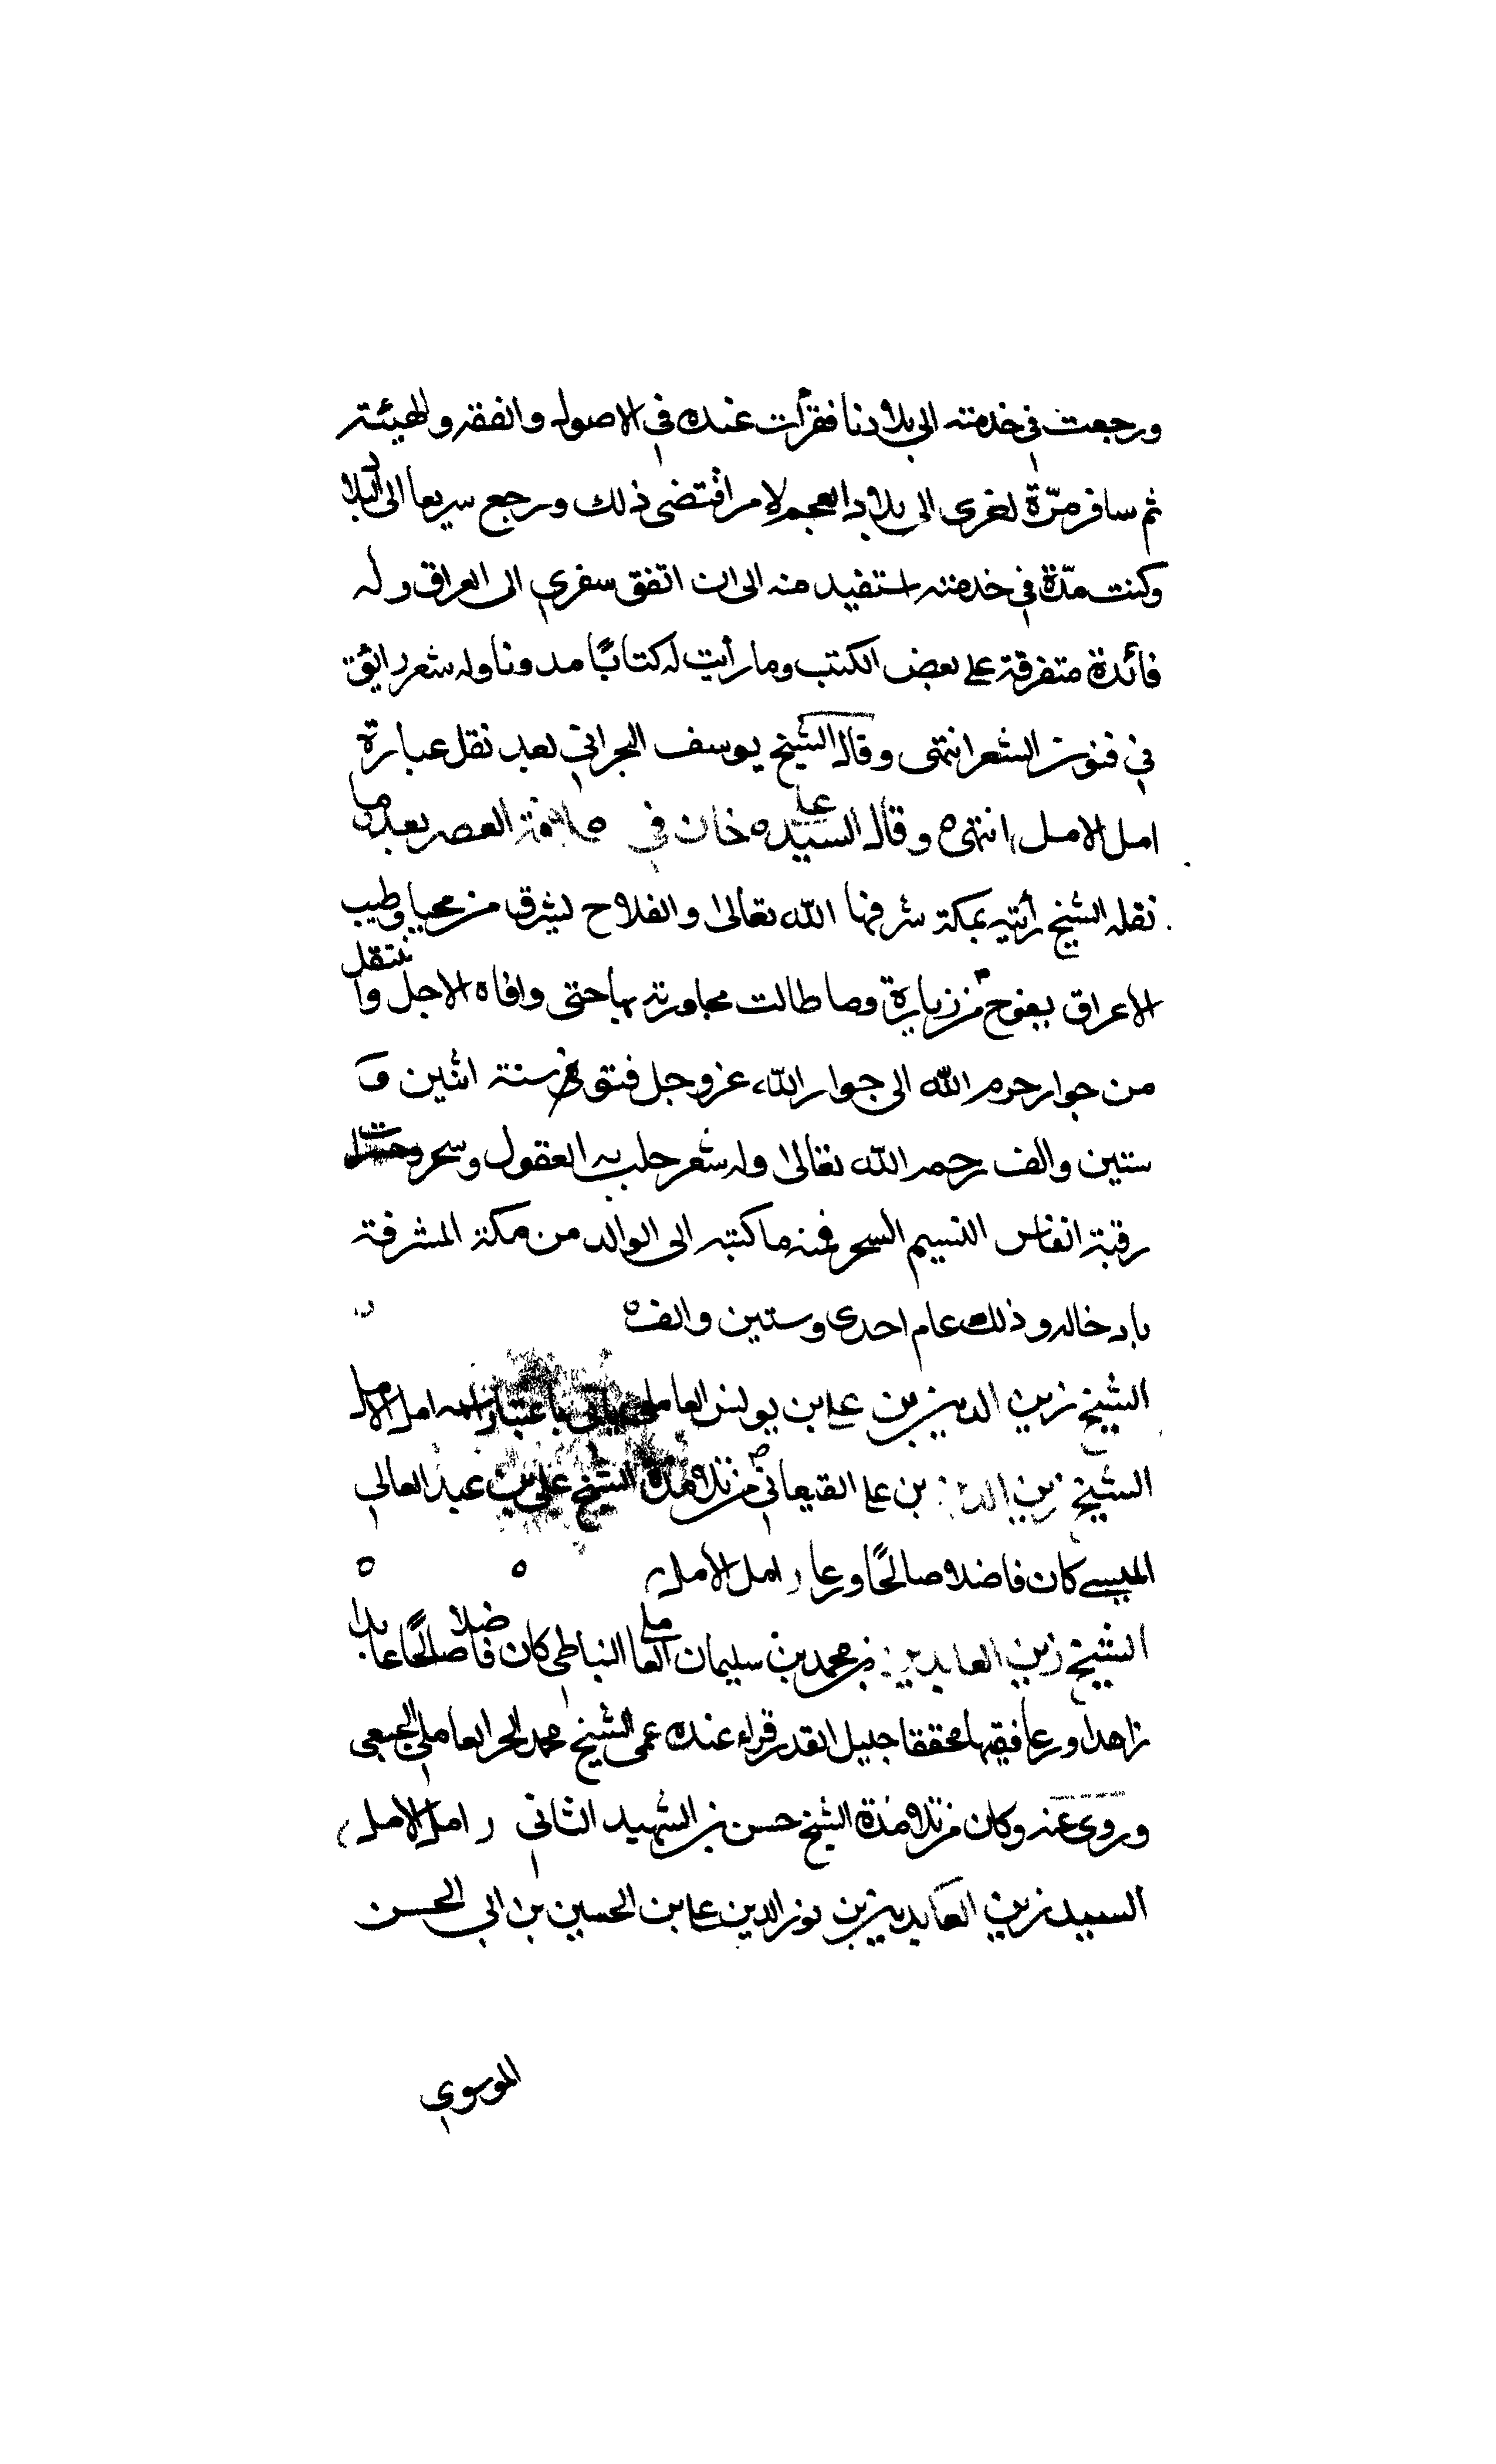 ورجعت في خدمته الى بلادنا فقرأت عنده في الاصول والفقه والهيئة
ثم سافر مرّة اخرى الى بلاد العجم لامر اقتضى ذلك ورجع سريعا الى البلاد
وكنت مدّة في خدمته استفيد منه الى ان اتفق سفري الى العراق وله
فائدة متفرقة على بعض الكتب وما رأيت له كتابًا مدونا وله شعر رائق
في فنون الشعر انتهى وقال الشيخ يوسف البحراني بعد نقل عبارة
امل الامل انتهى وقال السيد علي خان في سلافة العصر بعد ما
نقله الشيخ رأيته بمكة شرفها الله تعالى والفلاح يشرق من محياه وطيب
الاعراق يفوح من زيارة وما طالت مجاورته بها حتى وافاه الاجل وانتقل
من جوار حرم الله الى جوار الله عز وجل فتوفى سنة اثنين و
ستين والف رحمه الله تعالى وله شعر خلب به العقول وسحر وحسدت
رقبة انفاس النسيم السحر فمنه ما كتبه الى الوالد من مكة المشرفة
وذلك عام احدى وستين والف
الشيخ زين الدين بن علي بن يونس العاملي امل الامل
الشيخ زين الدين بن علي من تلامذة الشيخ علي بن عبد العالي
الميسي كان فاضلا صالحًا ورعا امل الامل
الشيخ زين العابدين بن محمد بن سليمان العاملي النباطي كان فاضلا صالحًا عابدا
زاهدا ورعا فقيها محققا جليل القدر قراء عنده عمى الشيخ محمد الحر العاملي الجبعي
وروى عنه وكان من تلامذة الشيخ حسن بن الشهيد الثاني امل الامل
السيد زين العابدين بن نور الدين علي بن الحسين بن ابي الحسن
الموسوي